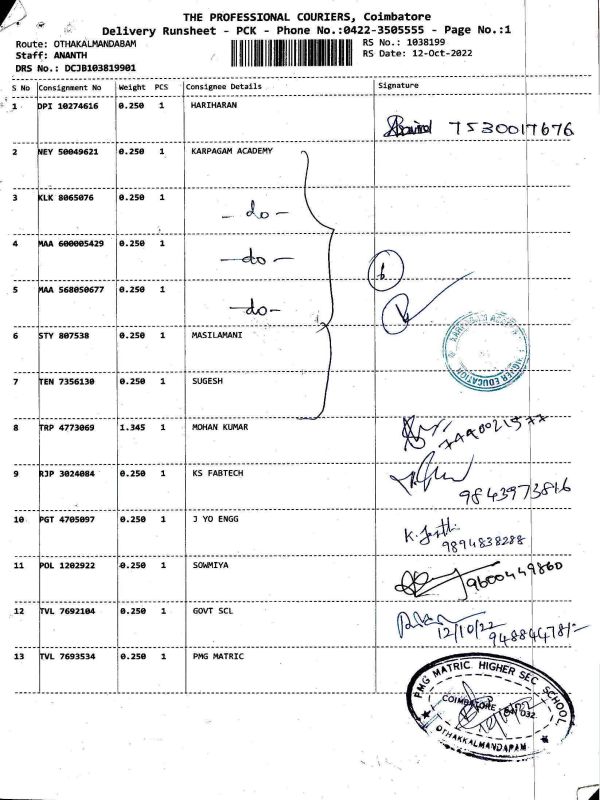 THE PROFESSIONAL COURIERS, Coimbatore
Delivery Runsheet - PCK - Phone No.:0422-3505555 - Page No.:1
Route: OTHAKALMANDABAM RS No.: 1038199
Staff: ANANTH RS Date: 12-Oct-2022
DRS No.: DCJB103819901
S No Consignment No Weight PCS Consignee Details Signature
1 DPI 10274616 0.250 1 HARIHARAN
7530017676
2 NEY 50049621 0.250 1 KARPAGAM ACADEMY
3 KLK 8065076 0.250 1
- do -
4 MAA 600005429 0.250 1
- do -
5 MAA 568050677 0.250 1
- do -
6 STY 807538 0.250 1 MASILAMANI
HIGHER EDUCATION
7 TEN 7356130 0.250 1 SUGESH
8 TRP 4773069 1.345 1 MOHAN KUMAR
9 RJP 3024084 0.250 1 KS FABTECH
9843973816
10 PGT 4705097 0.250 1 J YO ENGG
9894838288
11 POL 1202922 0.250 1 SOWMIYA
9600449860
12 TVL 7692104 0.250 1 GOVT SCL
12/10/22
13 TVL 7693534 0.250 1 PMG MATRIC
PMG MATRIC HIGHER SEC SCHOOL
COIMBATORE
OTHAKKALMANDAPAM